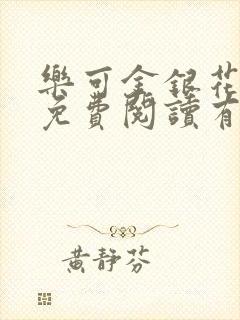 樂可金銀花
免費閱讀有
黃靜芬